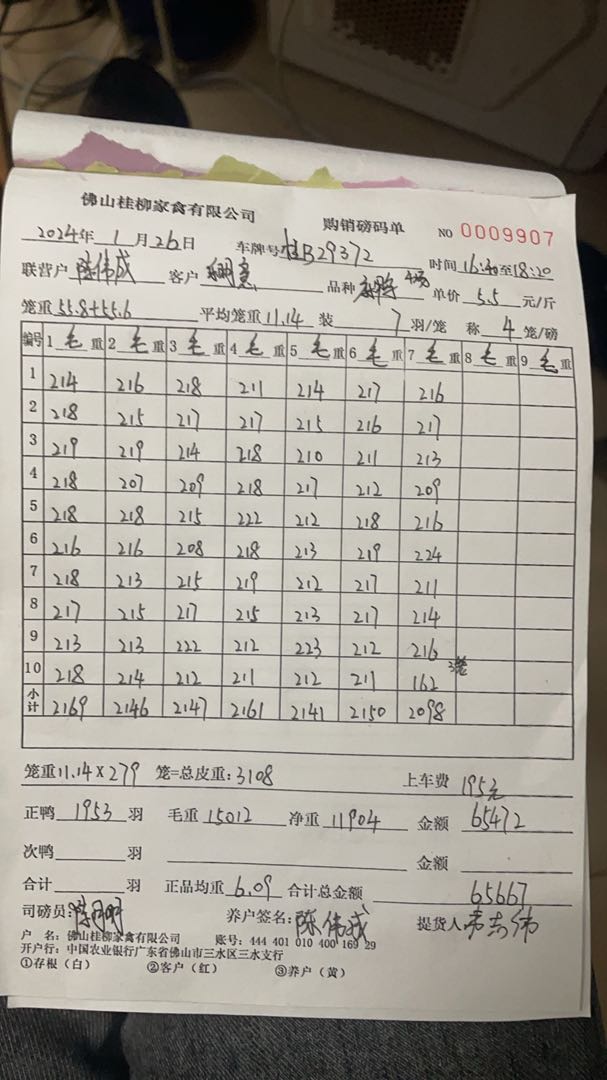 佛山桂柳家禽有限公司 购销磅码单 NO 0009907
2024年 1 月 26 日 车牌号 桂B29372 时间 16:40至18:20
联营户 陈伟成 客户 品种 单价 5.5 元/斤
笼重 55.8+55.6 平均笼重 11.14 装 7 羽/笼 称 4 笼/磅
编号 1 毛 重 2 毛 重 3 毛 重 4 毛 重 5 毛 重 6 毛 重 7 毛 重 8 毛 重 9 毛 重
1 214 216 218 211 214 217 216
2 218 215 217 217 215 216 217
3 219 219 214 218 210 211 213
4 218 207 209 218 217 212 209
5 218 218 215 222 212 218 216
6 216 216 208 218 213 219 224
7 218 213 215 219 212 217 211
8 217 215 217 215 213 217 214
9 213 213 222 212 223 212 216
10 218 214 212 211 212 211 162 3笼
小计 2169 2146 2147 2161 2141 2150 2098
笼重 11.14×279 笼=总皮重: 3108 上车费 195元
正鸭 1953 羽 毛重 15012 净重 11904 金额 65472
次鸭 羽 金额
合计 羽 正品均重 6.09 合计总金额 65667
司磅员: 养户签名: 陈伟成 提货人
户 名: 佛山桂柳家禽有限公司 账号: 444 401 010 400 169 29
开户行: 中国农业银行广东省佛山市三水区三水支行
①存根（白） ②客户（红） ③养户（黄）